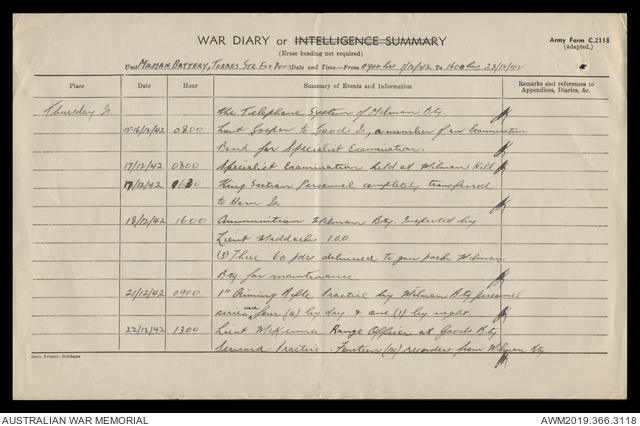 WAR DIARY or INTELLIGENCE SUMMARY
(Erase heading not required)
Army Form C.2118
(adapted.)
Unit MILMAN BATTERY, TORRES STR. Date and Time—From 0900 hrs 1/12/42 To 1600 hrs 23/12/42
Place Date Hour Summary of Events and Information Remarks and references to Appendices, Diaries, &c.
Thursday Is. the Telephone System of Milman Bty.
15-16/12/42 0800 Lieut to Goods Is, a member of an Examination
Board for Specialist Examination.
17/12/42 0800 Specialist Examination held at Milman Hill
17/12/42 King Section Personnel completely transferred
to Horn Is.
18/12/42 1600 Ammunition Milman Bty. Inspected by
Lieut Maddocks I.O.O.
(3) Three 60 pdrs delivered to gun park Milman
Bty. for maintenance
21/12/42 0900 1" Aiming Rifle Practice by Milman Bty personnel
series four (4) by day & one (1) by night.
22/12/42 1300 Lieut McKenna Range Officer at Goods Bty
Seaward Practice. Fourteen (14) recorders from Milman Bty
Govt. Printer, Brisbane
AUSTRALIAN WAR MEMORIAL
AWM2019.366.3118